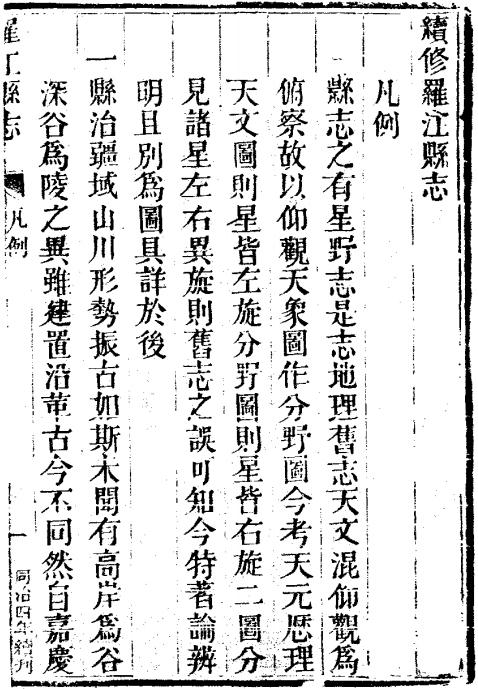 續修羅江縣志
凡例
縣志之有星野志是志地理舊志天文混仰觀爲
俯察故以仰觀天象圖作分野圖今考天元歷理
天文圖則星皆左旋分野圖則星皆右旋二圖分
見諸星左右異旋則舊志之誤可知今特著論辨
明且別爲圖具詳於後
一縣治疆域山川形勢振古如斯未聞有高岸爲谷
深谷爲陵之異雖建置沿革古今不同然自嘉慶
羅江縣志 凡例 一 同治四年續刊